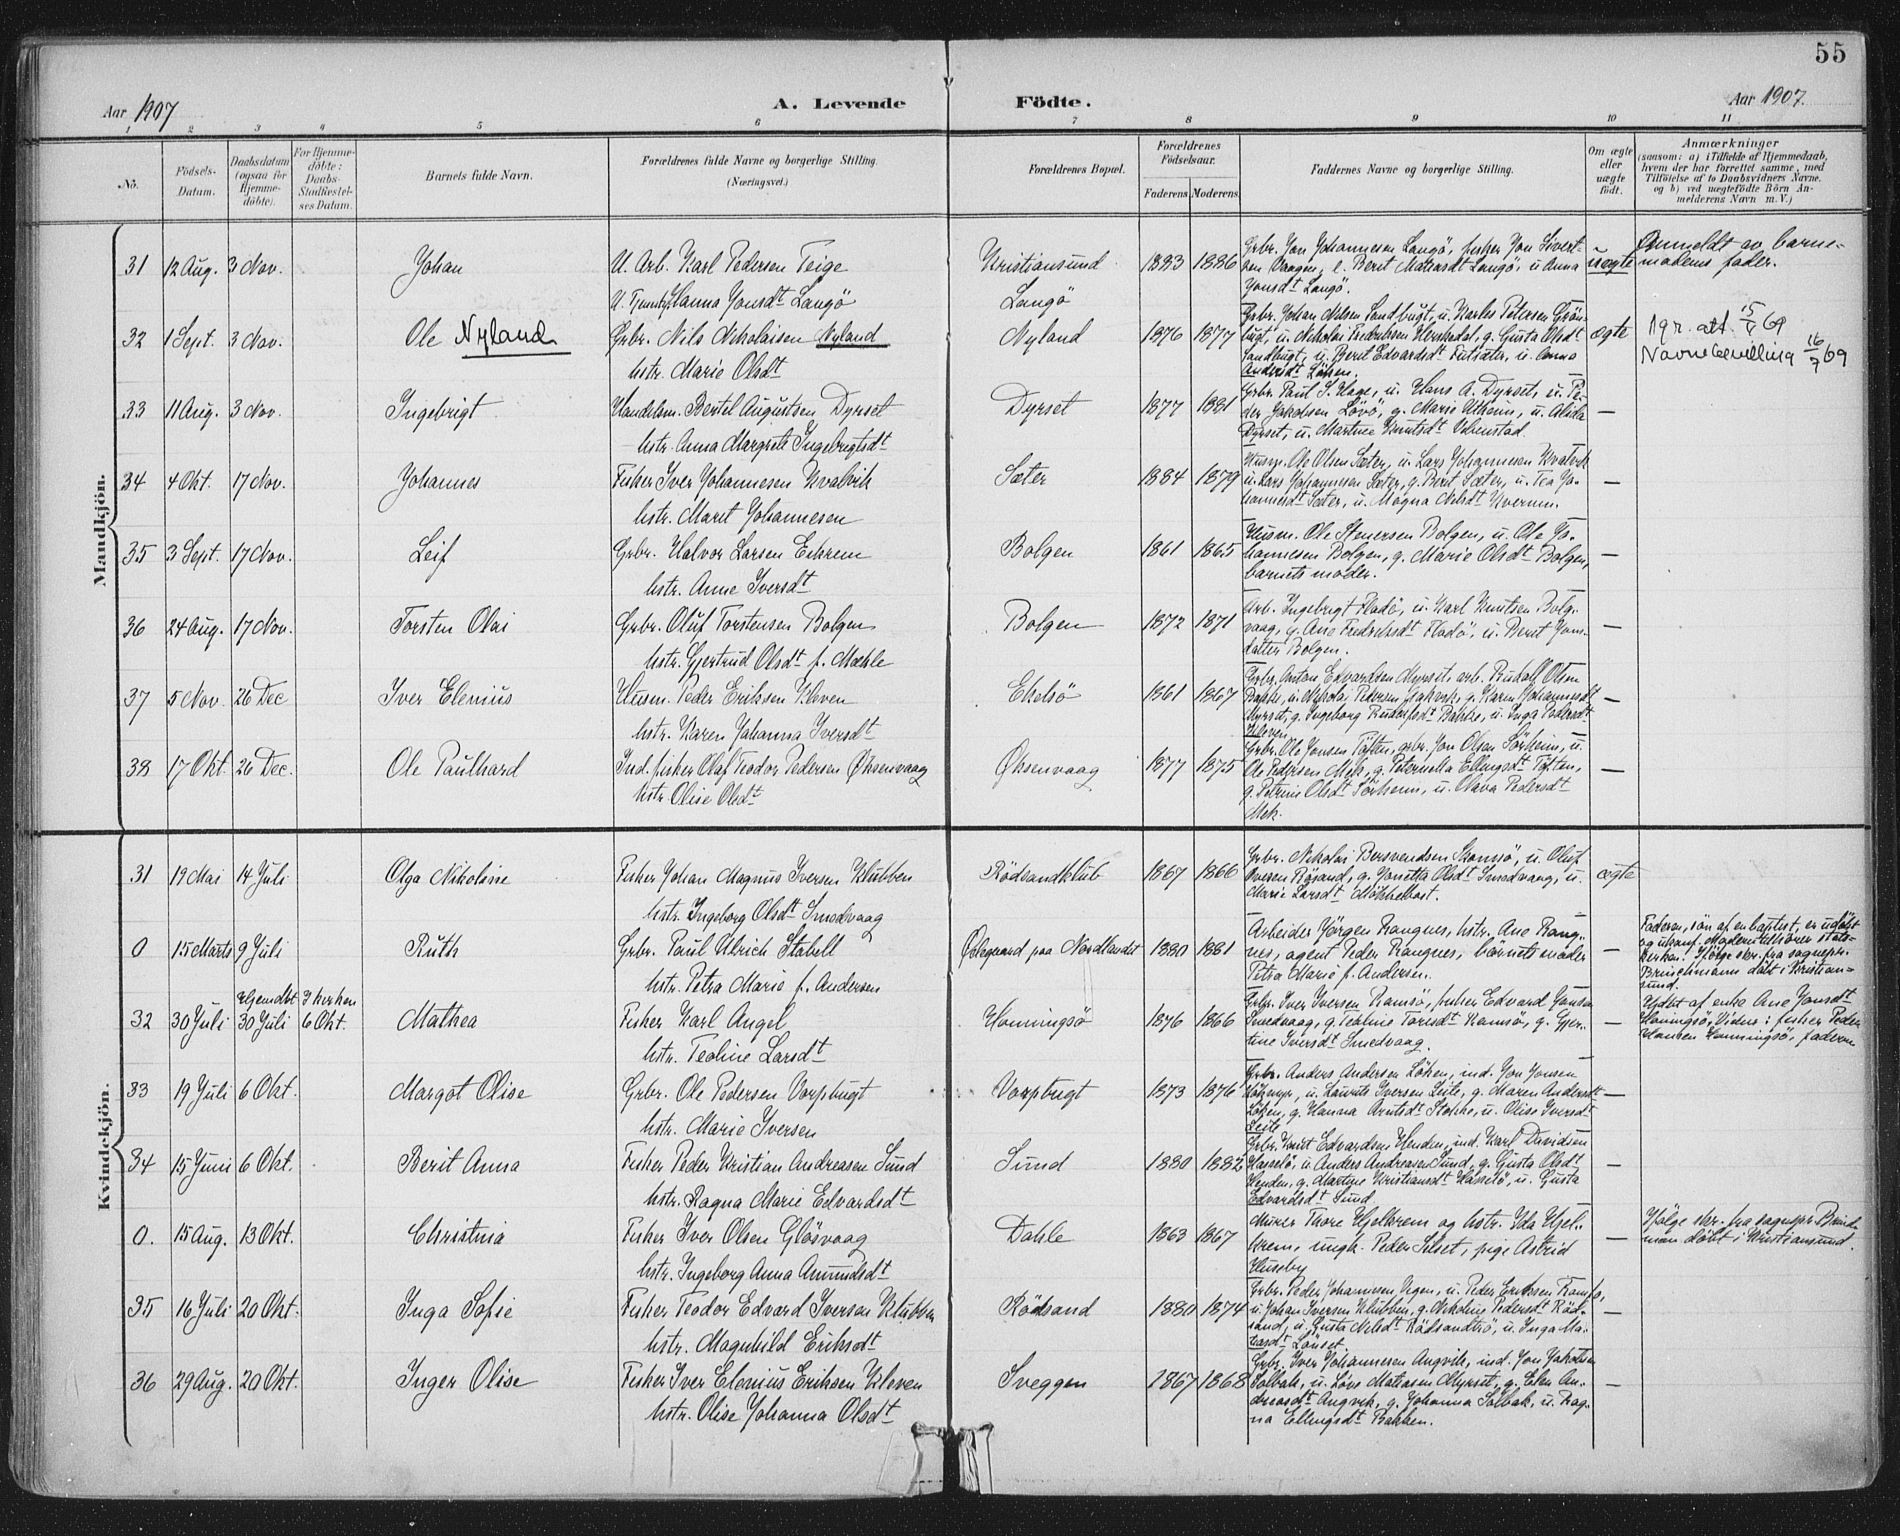 55
Aar 1907
A. Levende Födte.
Aar 1907.
1 2 3 4 5 6 7 8 9 10 11
No.
Födsels-Datum.
Daabsdatum (ogsaa for Hjemme-döbte).
For Hjemme-döbte: Daabs-Stadfæstel-ses Datum.
Barnets fulde Navn.
Forældrenes fulde Navne og borgerlige Stilling. (Næringsvei.)
Forældrenes Bopæl.
Forældrenes Födselsaar.
Faderens. Moderens.
Faddernes Navne og borgerlige Stilling.
Om ægte eller uægte födt.
Anmærkninger
(saasom: a) i Tilfælde af Hjemmedaab, hvem der har forrettet samme, med Tilföielse af to Daabsvidners Navne. og b) ved uægtefödte Börn An-melderens Navn m. V.)
Mandkjön.
31 12 Aug. 3 Nov. Johan
U. Arb. Karl Pedersen Teige
Hanna Jonsdt Langö
Kristiansund
Langö
1883 1886
Grbr. Jon Johannesen Langö, fisher Jon Sivert-
sen Vaagen, e. Berit Matiasdt Langö, u Anna
Jonsdt Langö.
uægte
Anmeldt av barne-
moderns fader.
32 1 Sept. 3 Nov. Ole Nyland
Grbr. Nils Nikolaisen Nyland
hstr. Marie Olsdt
Nyland 1876 1877
Grbr. Johan Nilsen Sandbugt, u. Karles Petersen Grön-
bugt, u. Nikolai Fredriksen Henshedal, g. Gusta Olsdt
Sandbugt, u. Berit Edvardsdt Futsæter, u. Anna
Andersdt Löken.
ægte
Agr. att. 15/9 69
Navnebevilling 16/9 69
33 11 Aug. 3 Nov. Ingebrigt
Handelsm. Bertel Augustsen Dyrset
hstr. Anna Margrete Ingebrigtsdt
Dyrset 1877 1881
Grbr. Paul S. Hage, u. Hans A. Dyrset, u. Pe-
der Jakobsen Lövö, g. Marie Utheim, u. Alida
Dyrset, u. Martine Knutsdt Vebenstad. —
34 4 Okt. 17 Nov. Johannes
Fisher Iver Johannesen Kvalvik
hstr. Marit Johannesen
Sæter 1884 1879
Husm. Ole Olsen Sæter, u. Lars Johannesen Kvalvik
u. Lars Johannesen Sæter, g. Berit Sæter, u. Tea Jo-
hannesdt Sæter, u. Magna Nilsdt Kvernm. —
35 3 Sept. 17 Nov. Leif
Grbr. Halvor Larsen Eikrem
hstr. Anne Iversdt
Bolgen 1861 1865
Husm. Ole Stenersen Bolgen, u. Ole Jo-
hannesen Bolgen, g. Marie Olsdt Bolgen,
barnets moder. —
36 24 Aug. 17 Nov. Torsten Olai
Grbr. Oluf Torstensen Bolgen
hstr. Gjertrud Olsdt f. Mæhle
Bolgen 1872 1871
Arb. Ingebrigt Fladö, u. Karl Knutsen Bolg-
vaag, g. Ane Fredriksdt Fladö, u. Berit Jons-
datter Bolgen. —
37 5 Nov. 26 Dec Iver Elenius
Husm. Peder Eriksen Kleven
hstr. Karen Johanna Iversdt
Ekelsö 1861 1867
Grbr. Anton Edvardsen Myrset, arb. Rudolf Olsen
Bakke, u. Nikolai Pedersen Jakvik, g. Karen Johannesdt
Myrset, g. Ingeborg Rudolfsdt Bakke, u. Inga Pedersdt
Kleven —
38 17 Okt. 26 Dec. Ole Paulhard
Ind. fisher Olaf Teodor Pedersen Øksenvaag
hstr. Olise Olsdt
Øksenvaag 1877 1875
Grbr. Ole Jonsen Töften, grbr. Jon Olsen Sörheim, u.
Ole Pedersen Mek, g. Peternella Ellingsdt Töften,
g. Petrine Olsdt Sörheim, u. Olava Pedersdt
Mek. —
Kvindekjön.
31 19 Mai 14 Juli Olga Nikoline
Fisher Johan Magnus Iversen Klubben
hstr. Ingeborg Olsdt Smedvaag
Rödsandklub 1867 1866
Grbr. Nikolai Bersvendsen Skomsö, u. Oluf
Ovesen Rösand, g. Jonetta Olsdt Smedvaag, u.
Marie Larsdt Mökkelbost.
ægte
0 15 Marts 9 Juli Ruth
Grbr. Paul Ulrich Stabell
hstr. Petra Marie f. Andersen
Ödegaard paa Nordlandet 1880 1881
Arbeider Jörgen Rangnes, hstr. Ane Rang-
nes, agent Peder Rangnes, barnets moder
Petra Marie f. Andersen. —
Faderen, sön af en baptist, er udöbt
og ukonf. Modern tilhörer stats-
kirken. Ifölge skr. fra sognepr.
Brinchmann döbt i Kristian-
sund.
32 30 Juli Hjemdbt 30 Juli I kirken 6 Okt. Mathea
Fisher Karl Angel
hstr. Teoline Larsdt
Honningsö 1876 1866
Grbr. Iver Iversen Ramsö, fisher Edvard Jonsen
Smedvaag, g. Teoline Toresdt Ramsö, g. Gjer-
tine Iversdt Smedvaag. —
Hjdbt af enke Ane Jonsdt
Honingsö. Vidne: fisher Peder
Hansen Honningsö, faderen
33 19 Juli 6 Okt. Margot Olise
Grbr. Ole Pedersen Vorpbugt
hstr. Marie Iversen
Vorpbugt 1873 1876
Grbr. Anders Andersen Löken, ind. Jon Jonsen
, u. Laurits Iversen Leite, g. Maren Andersdt
Löken, g. Hanna Arntsdt Stokke, u. Olise Iversdt
Leite —
34 15 Juni 6 Okt. Berit Anna
Fisher Peder Kristian Andreasen Sund
hstr. Ragna Marie Edvardsdt
Sund 1880 1882
Grbr. Knut Edvardsen Henden, ind. Karl Davidsen
Hasselö, u. Anders Andreasen Sund, g. Gusta Olsdt
Henden, g. Martine Kristiansdt Hasselö, u. Gusta
Edvardsdt Sund. —
0. 15 Aug. 13 Okt. Christina
Fisher Iver Olsen Glösvaag
hstr. Ingeborg Anna Amundsdt
Dahle 1863 1867
Murer Thore Hjelkrem og hstr. Ida Hjel-
krem, ungk. Peder Silset, pige Astrid
Huseby —
Ifölge skr. fra sognepr. Brinch-
man döbt i Kristiansund.
35 16 Juli 20 Okt. Inga Sofie
Fisher Teodor Edvard Iverson Klubben
hstr. Magnhild Eriksdt
Rödsand 1880 1874
Grbr. Peder Johannesen Vegen, u. Peder Eriksen Ramsö,
u. Johan Iversen Klubben, g. Nikoline Pedersdt Röd-
sand, u. Gusta Nilsdt Rödsandtrö, u. Inga Ma-
tiasdt Lönset. —
36 29 Aug. 20 Okt. Inger Olise
Fisher Iver Elenius Eriksen Kleven
hstr. Olise Johanna Olsdt
Sveggen 1867 1868
Grbr. Iver Johannesen Angvik, ind. Jon Jakobsen
Solbak, u. Löve Matiasen Myrset, g. Elen An-
dreasdt Angvik, g. Johanna Solbak, u. Rag-
na Ellingsdt Bakken. —